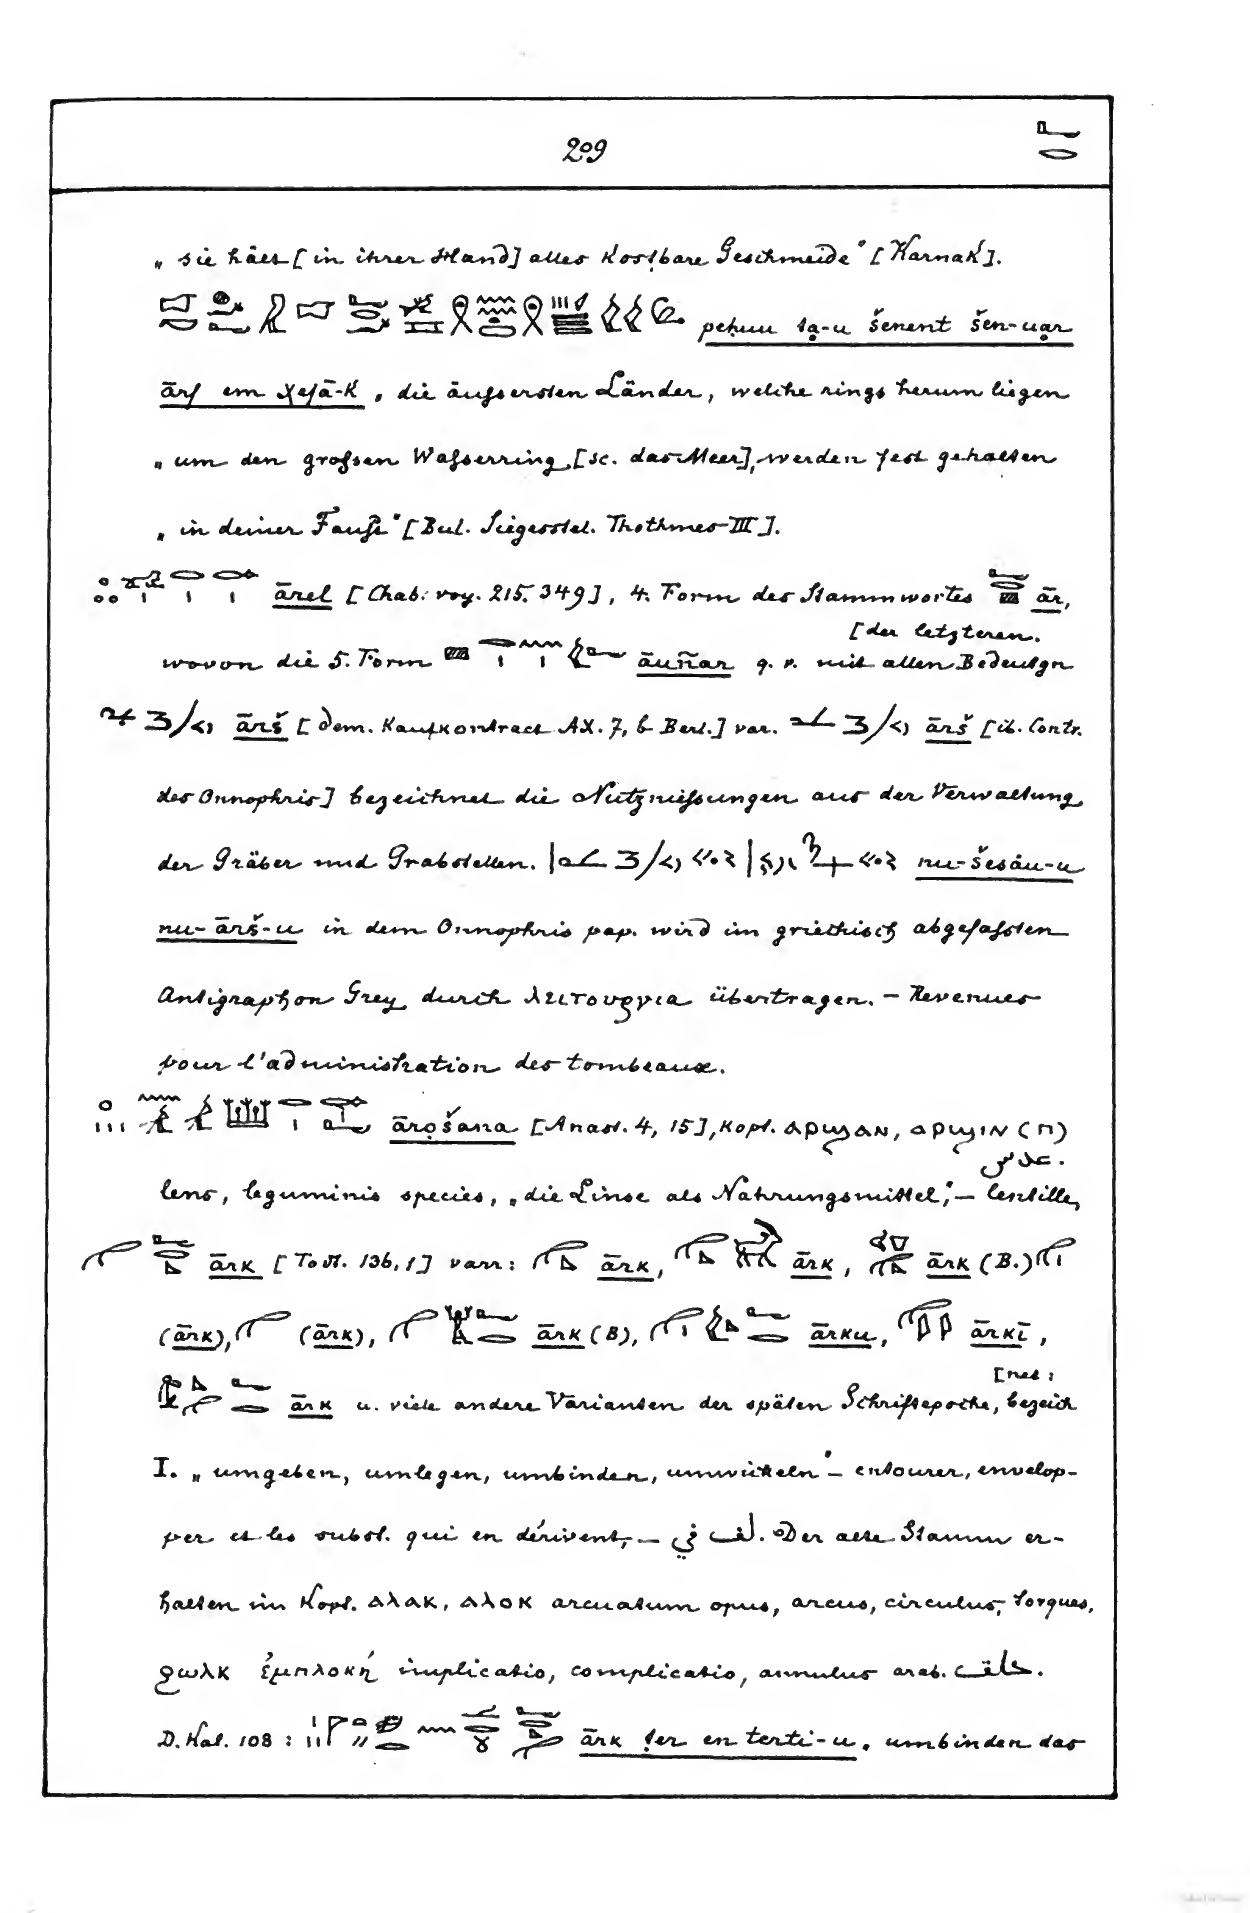 209
„ sie hält [in ihrer Hand] alles kostbare Geschmeide“ [Karnak].
peḥuu ta-u šenent šen-uar
ārf em χefā-k „ die äußersten Länder, welche rings herum liegen
„ um den großen Waßerring [sc. das Meer], werden fest gehalten
„ in deiner Faust“ [Bul. Siegesstel. Thothmes III].
ārel [Chab. voy. 215. 349], 4. Form des Stammwortes ār,
wovon die 5. Form āun̄ar q. v. mit allen Bedeutgn [der letzteren.
ārš [dem. Kaufkontract AX. 7, b Berl.] var. ārš [ib. Contr.
des Onnophris] bezeichnet die Nutznießungen aus der Verwaltung
der Gräber und Grabstellen. nu-šesáu-u
nu-ārš-u in dem Onnophris pap. wird im griechisch abgefaßten
Antigraphon Grey durch λειτουργια übertragen. – Revenues
pour l'administration des tombeaux.
ārošana [Anast. 4, 15], kopt. ⲁⲣϣⲁⲛ, ⲁⲣϣⲓⲛ (ⲡ)
lens, leguminis species, „die Linse als Nahrungsmittel“, – lentille, عدس.
ārk [Todt. 136, 1] varr: ārk, ārk, ārk (B.)
(ārk), (ārk), ārk (B), ārku, ārkī,
ārk u. viele andere Varianten der späten Schriftepoche, bezeich[net:
I. „ umgeben, umlegen, umbinden, umwickeln“ – entourer, envelop-
per et les subst. qui en dérivent, – لف في. Der alte Stamm er-
halten im Kopt. ⲁⲗⲁⲕ, ⲁⲗⲟⲕ arcuatum opus, arcus, circulus, torques,
ϩⲱⲗⲕ ἐμπλοκή implicatio, complicatio, annulus arab. حلقت.
D. Kal. 108 : ārk ter en terti-u „ umbinden das